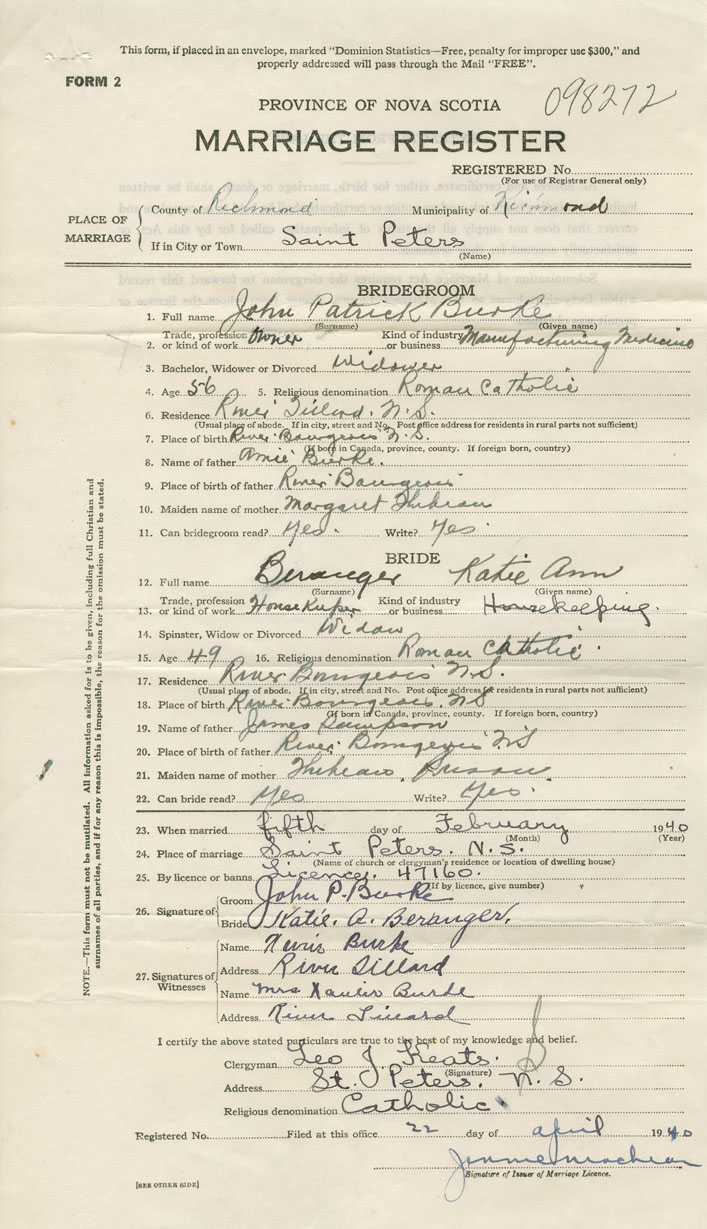 This form, if placed in an envelope, marked "Dominion Statistics—Free, penalty for improper use $300," and
properly addressed will pass through the Mail "FREE".
FORM 2
098272
PROVINCE OF NOVA SCOTIA
MARRIAGE REGISTER
REGISTERED No.
(For use of Registrar General only)
PLACE OF MARRIAGE
County of Richmond Municipality of Richmond
If in City or Town Saint Peters
(Name)
BRIDEGROOM
1. Full name John Patrick Burke
(Surname) (Given name)
2. Trade, profession or kind of work Owner Kind of industry or business Manufacturing Medicine
3. Bachelor, Widower or Divorced Widower
4. Age 56 5. Religious denomination Roman Catholic
6. Residence River Tillard. N.S.
(Usual place of abode. If in city, street and No. Post office address for residents in rural parts not sufficient)
7. Place of birth River Bourgeois N.S.
(If born in Canada, province, county. If foreign born, country)
8. Name of father Burke.
9. Place of birth of father River Bourgeois
10. Maiden name of mother Margaret Thibeau
11. Can bridegroom read? Yes. Write? Yes
BRIDE
12. Full name Beranger Katie Ann
(Surname) (Given name)
13. Trade, profession or kind of work HouseKeeper Kind of industry or business Housekeeping.
14. Spinster, Widow or Divorced Widow
15. Age 49 16. Religious denomination Roman Catholic
17. Residence River Bourgeois N.S.
(Usual place of abode. If in city, street and No. Post office address for residents in rural parts not sufficient)
18. Place of birth River Bourgeois. N.S
(If born in Canada, province, county. If foreign born, country)
19. Name of father James Sampson
20. Place of father River Bourgeois N.S
21. Maiden name of mother Thibeau,
22. Can bride read? Yes Write? Yes.
23. When married fifth day of February 1940
(Month) (Year)
24. Place of marriage Saint Peters. N.S.
(Name of church or clergyman's residence or location of dwelling house)
25. By licence or banns Licence. 47160.
(If by licence, give number)
26. Signature of
Groom John P. Burke
Bride Katie. A. Beranger.
27. Signatures of Witnesses
Name Burke
Address River Dillard
Name Mrs Xavier Burke
Address River
I certify the above stated particulars are true to the best of my knowledge and belief.
Clergyman Leo J. Keats.
(Signature)
Address St. Peters, N.S.
Religious denomination Catholic
Registered No. Filed at this office 22 day of april 1940
Signature of Issuer of Marriage Licence.
[SEE OTHER SIDE]
NOTE.—This form must not be mutilated. All information asked for is to be given, including full Christian and
surnames of all parties, and if for any reason this is impossible, the reason for the omission must be stated.